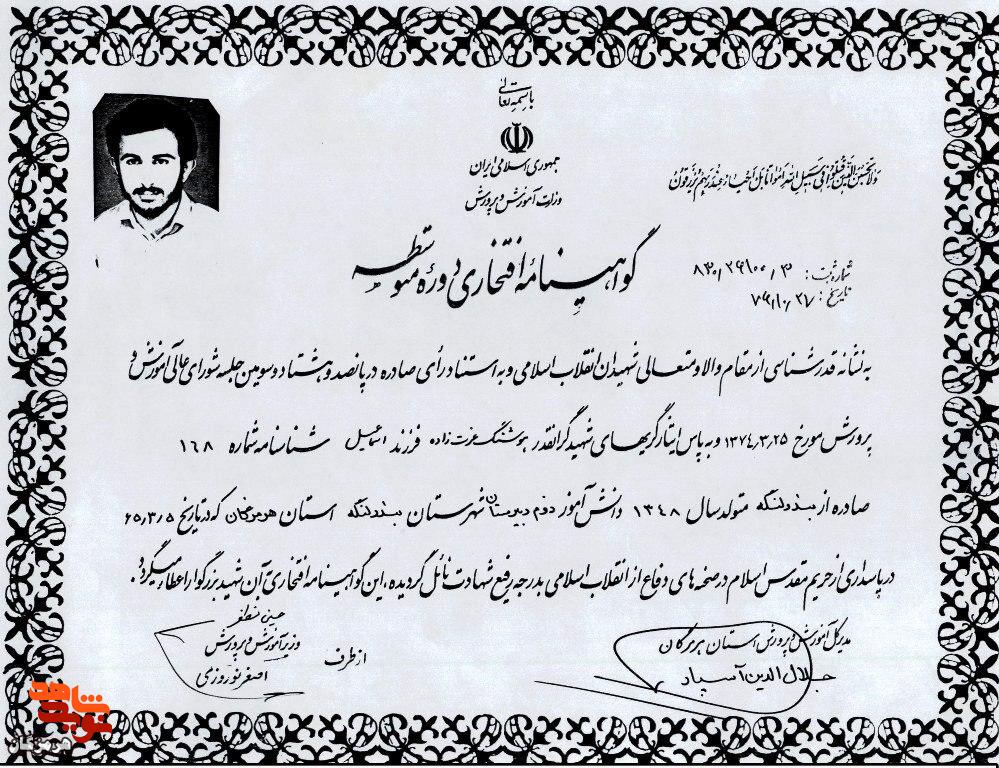 باسمه تعالی
جمهوری اسلامی ایران
وزارت آموزش و پرورش
ولا تحسبن الذین قتلوا فی سبیل الله امواتا بل احیاء عند ربهم یرزقون
گواهینامهٔ افتخاری دورهٔ متوسطه
شماره ثبت:
تاریخ:
به نشانه قدرشناسی از مقام والا و متعالی شهیدان انقلاب اسلامی و به استناد رأی صادره در پانصد و هشتاد و سومین جلسه شورای عالی آموزش و
پرورش مورخ ۱۳۷۴٫۳٫۲۵ و به پاس ایثارگریهای شهید گرانقدر هوشنگ عزت زاده فرزند اسماعیل شناسنامه شماره ۱۶۸
صادره از بندرلنگه متولد سال ۱۳۴۸ دانش آموز دوم دبیرستان شهرستان بندرلنگه استان هرمزگان که در تاریخ ۶۵٫۳٫۵
در پاسداری از حریم مقدس اسلام در صحنه های دفاع از انقلاب اسلامی بدرجه رفیع شهادت نائل گردیده، این گواهینامه افتخاری به آن شهید بزرگوار اعطاء میگردد.
مدیرکل آموزش و پرورش استان هرمزگان
جلال الدین آسپاد
از طرف
حسین مظفر
وزیر آموزش و پرورش
اصغر نوروزی
نوید شاهد
هرمزگان